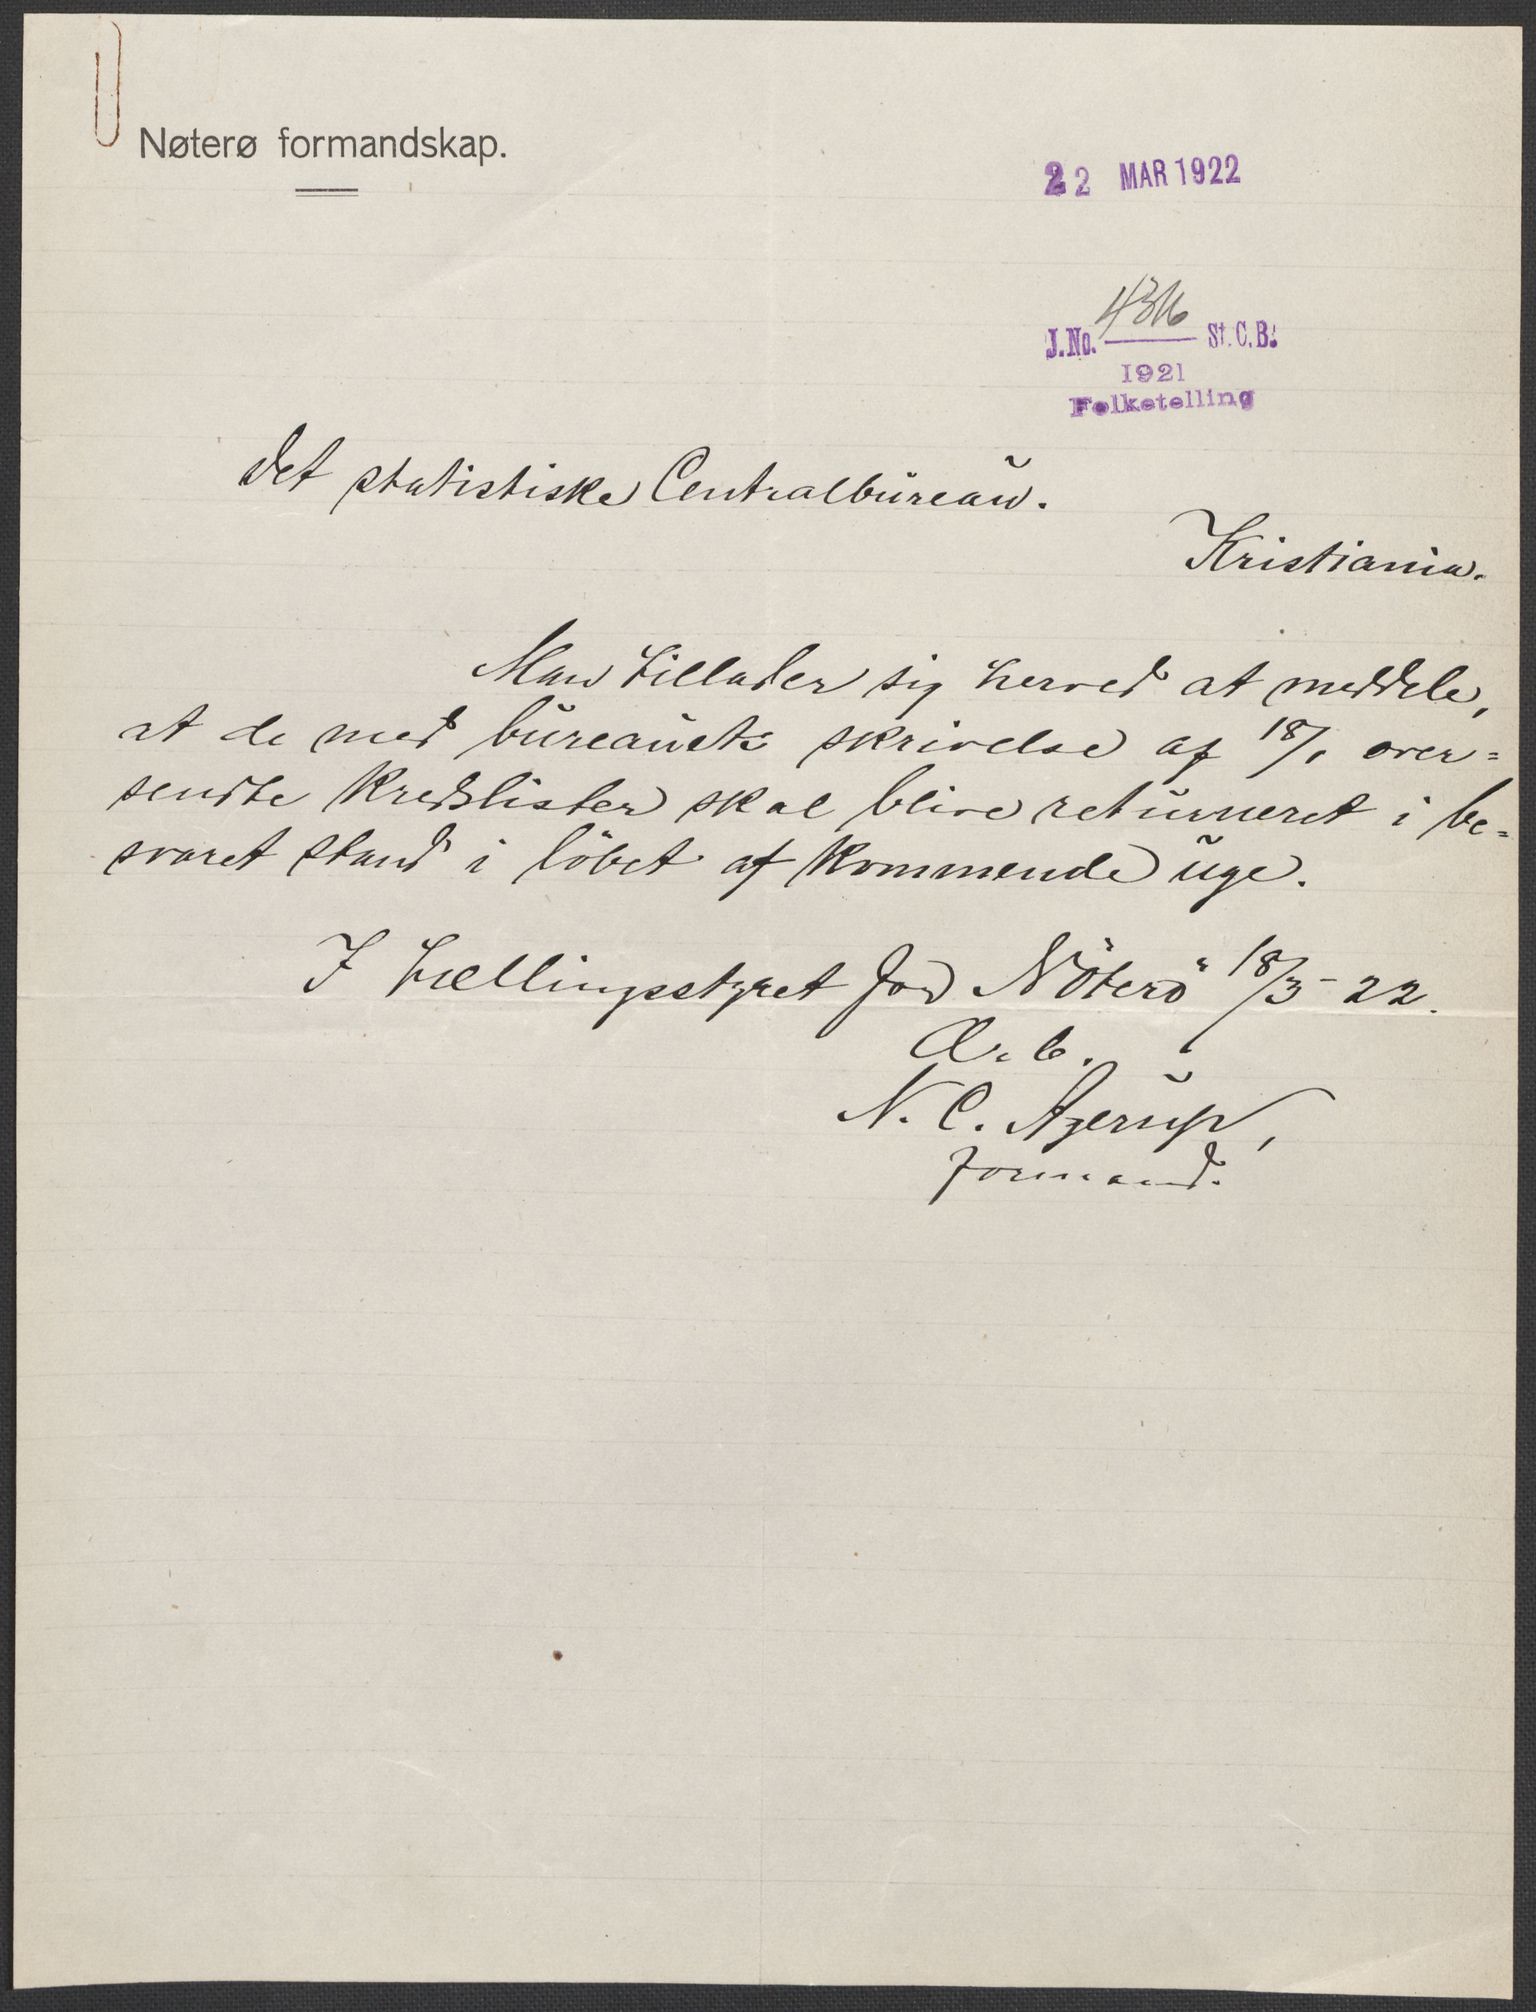 Nøterø formandskap.
22 MAR 1922
4316
J.No. St.C.B.
1921
Folketelling
Det statistiske Centralbureau.
Kristiania.
Man tillader sig herved at meddele,
at de med bureauets skrivelse af 18/1 over=
sendte kredslister skal blive returneret i be=
svaret stand i löbet af kommende uge.
I tællingsstyret for Nöterö 18/3-22.
Ær. b.
N. C. Agerup,
formand.